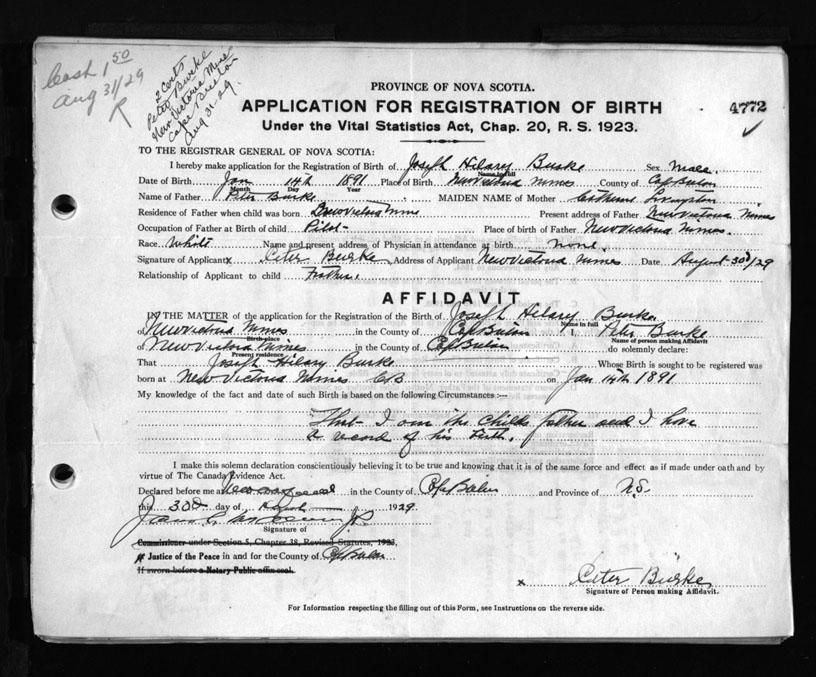 Cash 1 50
Aug 31/29
R
2 Certs
Peter Burke
New Victoria Mines
Cape Breton
Aug 31-29.
PROVINCE OF NOVA SCOTIA.
APPLICATION FOR REGISTRATION OF BIRTH
4772
Under the Vital Statistics Act, Chap. 20, R. S. 1923.
TO THE REGISTRAR GENERAL OF NOVA SCOTIA:
I hereby make application for the Registration of Birth of Joseph Hilary Burke Sex Male.
Name in full
Date of Birth Jan 14th 1891 Place of Birth New Victoria Mines County of Cape Breton
Month Day Year
Name of Father Peter Burke MAIDEN NAME of Mother Catherine Livingston
Residence of Father when child was born New Victoria Mine Present address of Father New Victoria Mines
Occupation of Father at Birth of Child Pilot- Place of birth of Father New Victoria Mines.
Race White Name and present address of Physician in attendance at birth none.
Signature of Applicant x Peter Burke Address of Applicant New Victoria Mines Date August 30th/29
Relationship of Applicant to child Father.
AFFIDAVIT
IN THE MATTER of the application for the Registration of the Birth of Joseph Hilary Burke
Name in full
of New Victoria Mines in the County of Cape Breton I, Peter Burke
Birth-place Name of person making Affidavit
of New Victoria Mines in the County of Cape Breton do solemnly declare:
Present residence
That Joseph Hilary Burke Whose Birth is sought to be registered was
born at New Victoria Mines CB on Jan 14th 1891
My knowledge of the fact and date of such Birth is based on the following Circumstances :—
That I am the Childs father and I have
a record of his birth.
I make this solemn declaration conscientiously believing it to be true and knowing that it is of the same force and effect as if made under oath and by
virtue of The Canada Evidence Act.
Declared before me at in the County of Cape Breton and Province of N.S.
this 30th day of August 1929
J.P.
Signature of
Commissioner under Section 5, Chapter 38, Revised Statutes, 1923,
# Justice of the Peace in and for the County of Cape Breton
If sworn before a Notary Public affix seal.
x Peter Burke
Signature of Person making Affidavit.
For Information respecting the filling out of this Form, see Instructions on the reverse side.